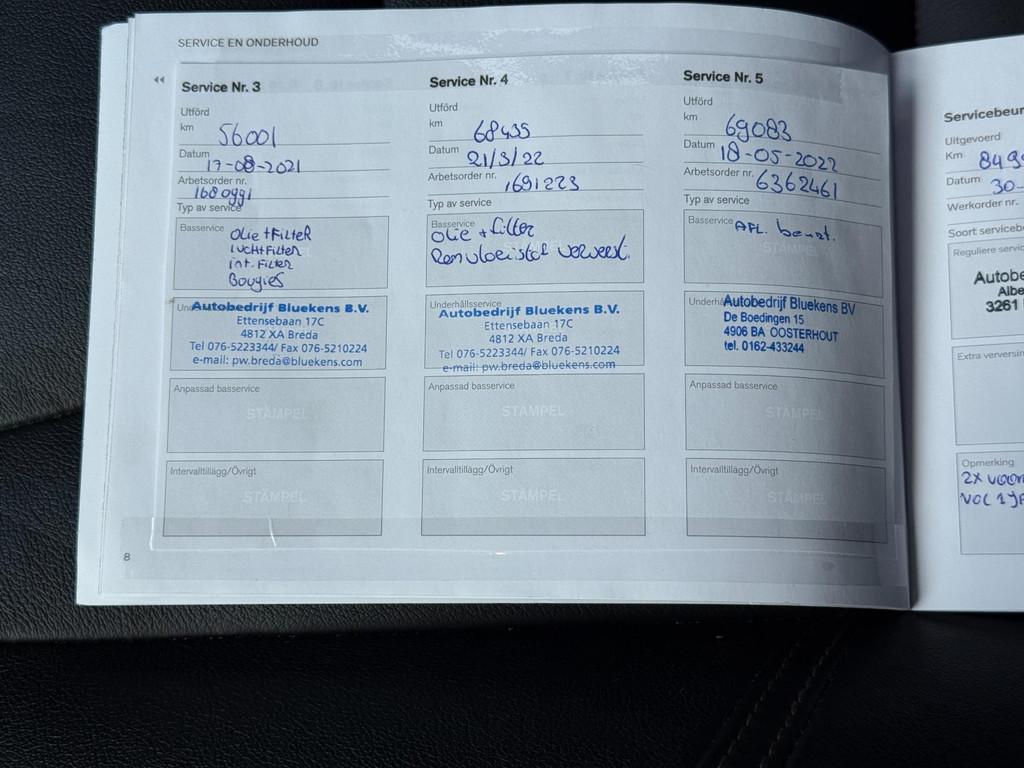 SERVICE EN ONDERHOUD
Service Nr. 3
Utförd
km 56001
Datum 17-08-2021
Arbetsorder nr.
Typ av service
Basservice
Olie + Filter
Luchtfilter
int. Filter
Bougies
Autobedrijf Bluekens B.V.
Ettensebaan 17C
4812 XA Breda
Tel 076-5223344/ Fax 076-5210224
e-mail: pw.breda@bluekens.com
Anpassad basservice
STÄMPEL
Intervalltillägg/Övrigt
STÄMPEL
8
Service Nr. 4
Utförd
km 68435
Datum 21/3/22
Arbetsorder nr. 1691223
Typ av service
Basservice
Olie + filter
Remvloeistof ververst.
Underhållsservice
Autobedrijf Bluekens B.V.
Ettensebaan 17C
4812 XA Breda
Tel 076-5223344/ Fax 076-5210224
e-mail: pw.breda@bluekens.com
Anpassad basservice
STÄMPEL
Intervalltillägg/Övrigt
STÄMPEL
Service Nr. 5
Utförd
km 69083
Datum 18-05-2022
Arbetsorder nr. 6362461
Typ av service
Basservice AFL. beurt.
Autobedrijf Bluekens BV
De Boedingen 15
4906 BA OOSTERHOUT
tel. 0162-433244
Anpassad basservice
STÄMPEL
Intervalltillägg/Övrigt
STÄMPEL
Servicebeur
Uitgevoerd
Km 849
Datum 30-
Werkorder nr.
Soort serviceb
Reguliere servic
Autobe
Albe
3261
Extra verversin
Opmerking
2x voor